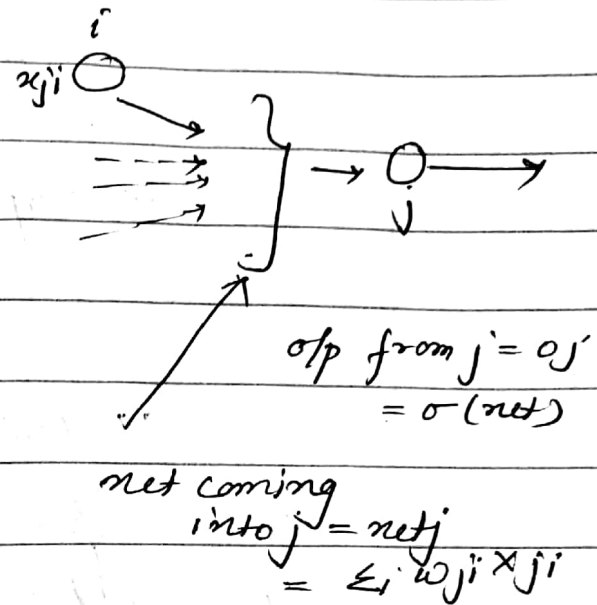 i
xji
j
o/p from j = oj
= σ(net)
net coming
into j = netj
= Σi wji xji